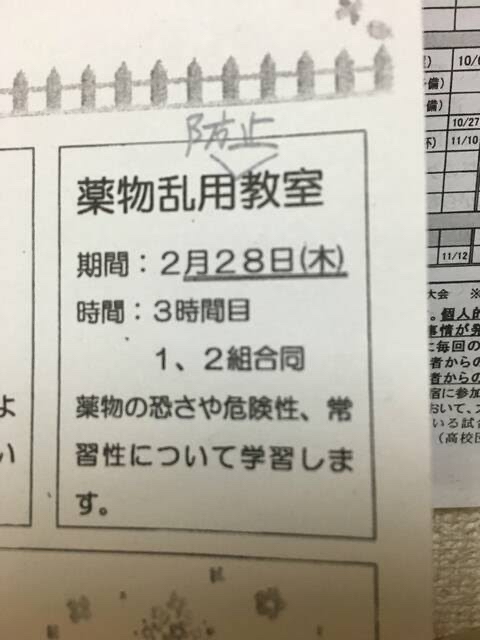 防止
薬物乱用教室
期間：2月28日(木)
時間：3時間目
1、2組合同
薬物の恐さや危険性、常
習性について学習しま
す。
よ
い
備)
備)
10/27
11/10
11/12
大会 ※
。個人的
事情が発
に毎回の
者からの
者からの
宿に参加
おいて、
いる試合
（高校団